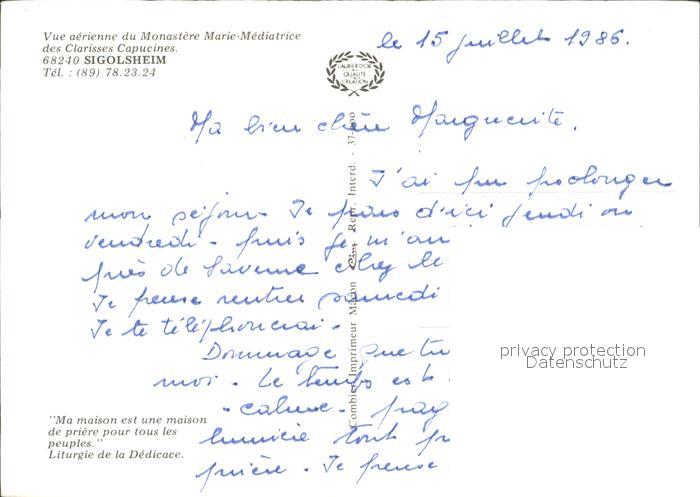 Vue aérienne du Monastère Marie-Médiatrice
des Clarisses Capucines.
68240 SIGOLSHEIM
Tél. : (89) 78.23.24
LAURIER D'OR
QUALITÉ
CRÉATION
le 15 juillet 1986.
Ma bien chère Marguerite,
J'ai pu prolonger
mon séjour. Je pars d'ici jeudi ou
vendredi - puis je m'ar
près de Saverne chez le
Je pense rentrer samedi
Je te téléphonerai.
Dommage que tu
moi. Le temps est
- calme -
lumière tout
prière. Je pense
Combier Imprimeur Macon Cim Repr. Interd. - 37-
"Ma maison est une maison
de prière pour tous les
peuples."
Liturgie de la Dédicace.
privacy protection
Datenschutz